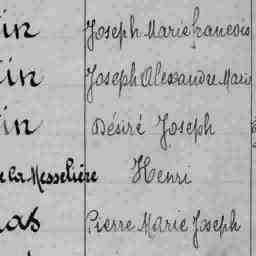 in Joseph Marie francois
in Joseph Alexandre Marie
in Désiré Joseph
de la Messelière Henri
as Pierre Marie Joseph